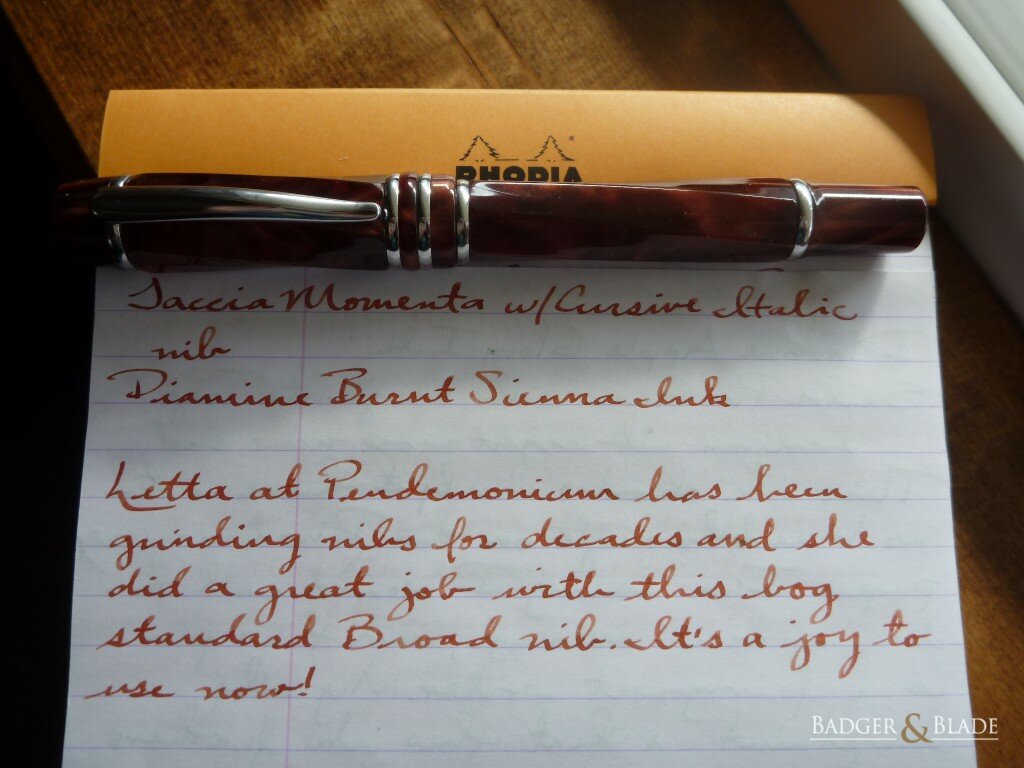 RHODIA
Taccia Momenta w/Cursive Italic
nib
Diamine Burnt Sienna Ink
Letta at Pendemonium has been
grinding nibs for decades and she
did a great job with this bog
standard Broad nib. It's a joy to
use now!
BADGER & BLADE